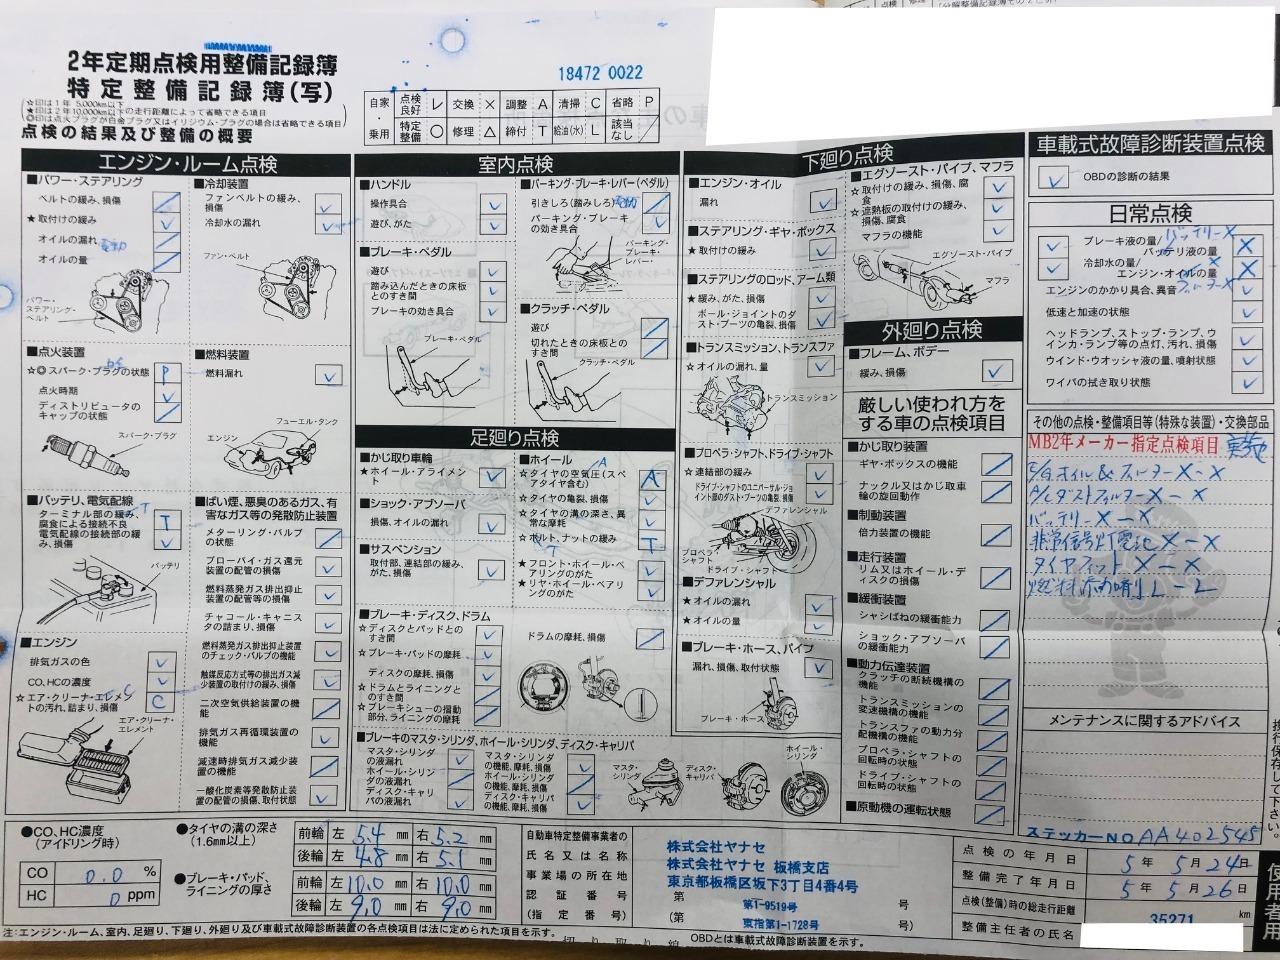 2年定期点検用整備記録簿
特定整備記録簿(写)
☆印は1年 5,000km以下
★印は2年10,000km以下の走行距離によって省略できる項目
◎印は点火プラグが白金プラグ又はイリジウム・プラグの場合は省略できる項目
点検の結果及び整備の概要
18472 0022
自家・乗用 点検良好 レ 交換 × 調整 A 清掃 C 省略 P
特定整備 ○ 修理 △ 締付 T 給油(水) L 該当なし /
エンジン・ルーム点検
■パワー・ステアリング
ベルトの緩み、損傷
★取付けの緩み
オイルの漏れ 電動
オイルの量
パワー・ステアリング・ベルト
■点火装置
☆◎スパーク・プラグの状態 P
点火時期
ディストリビュータのキャップの状態
スパーク・プラグ
■バッテリ、電気配線
ターミナル部の緩み、腐食による接続不良 T
電気配線の接続部の緩み、損傷
バッテリ
■エンジン
排気ガスの色
CO、HCの濃度
☆エア・クリーナ・エレメントの汚れ、詰まり、損傷 C
エア・クリーナ・エレメント
■冷却装置
ファンベルトの緩み、損傷
冷却水の漏れ
ファン・ベルト
■燃料装置
燃料漏れ
フューエル・タンク
エンジン
■ばい煙、悪臭のあるガス、有害なガス等の発散防止装置
メターリング・バルブの状態
ブローバイ・ガス還元装置の配管の損傷
燃料蒸発ガス排出抑止装置の配管等の損傷
チャコール・キャニスタの詰まり、損傷
燃料蒸発ガス排出抑止装置のチェック・バルブの機能
触媒反応方式等の排出ガス減少装置の取付けの緩み、損傷
二次空気供給装置の機能
排気ガス再循環装置の機能
減速時排気ガス減少装置の機能
一酸化炭素等発散防止装置の配管の損傷、取付状態
室内点検
■ハンドル
操作具合
遊び、がた
■ブレーキ・ペダル
遊び
踏み込んだときの床板とのすき間
ブレーキの効き具合
ブレーキ・ペダル
■パーキング・ブレーキ・レバー(ペダル)
引きしろ(踏みしろ) 電動
パーキング・ブレーキの効き具合
パーキング・ブレーキ・レバー
■クラッチ・ペダル
遊び
切れたときの床板とのすき間
クラッチ・ペダル
足廻り点検
■かじ取り車輪
★ホイール・アライメント
■ショック・アブソーバ
損傷、オイルの漏れ
■サスペンション
取付部、連結部の緩み、がた、損傷
■ホイール
☆タイヤの空気圧(スペアタイヤ含む) A
☆タイヤの亀裂、損傷
☆タイヤの溝の深さ、異常な摩耗
☆ボルト、ナットの緩み T
★フロント・ホイール・ベアリングのがた
★リヤ・ホイール・ベアリングのがた
■ブレーキ・ディスク、ドラム
☆ディスクとパッドとのすき間
☆ブレーキ・パッドの摩耗
ディスクの摩耗、損傷
☆ドラムとライニングとのすき間
☆ブレーキシューの摺動部分、ライニングの摩耗
ドラムの摩耗、損傷
■ブレーキのマスタ・シリンダ、ホイール・シリンダ、ディスク・キャリパ
マスタ・シリンダの液漏れ
ホイール・シリンダの液漏れ
ディスク・キャリパの液漏れ
マスタ・シリンダの機能、摩耗、損傷
ホイール・シリンダの機能、摩耗、損傷
ディスク・キャリパの機能、摩耗、損傷
マスタ・シリンダ
ディスク・キャリパ
ホイール・シリンダ
下廻り点検
■エンジン・オイル
漏れ
■ステアリング・ギヤ・ボックス
★取付けの緩み
■ステアリングのロッド、アーム類
★緩み、がた、損傷
ボール・ジョイントのダスト・ブーツの亀裂、損傷
■トランスミッション、トランスファ
☆オイルの漏れ、量
トランスミッション
■プロペラ・シャフト、ドライブ・シャフト
☆連結部の緩み
ドライブ・シャフトのユニバーサル・ジョイント部のダスト・ブーツの亀裂、損傷
デファレンシャル
プロペラ・シャフト
ドライブ・シャフト
■デファレンシャル
★オイルの漏れ
★オイルの量
■ブレーキ・ホース、パイプ
漏れ、損傷、取付状態
ブレーキ・ホース
■エグゾースト・パイプ、マフラ
☆取付けの緩み、損傷、腐食
☆遮熱板の取付けの緩み、損傷、腐食
マフラの機能
エグゾースト・パイプ
マフラ
外廻り点検
■フレーム、ボデー
緩み、損傷
厳しい使われ方をする車の点検項目
■かじ取り装置
ギヤ・ボックスの機能
ナックル又はかじ取車輪の旋回動作
■制動装置
倍力装置の機能
■走行装置
リム又はホイール・ディスクの損傷
■緩衝装置
シャシばねの緩衝能力
ショック・アブソーバの緩衝能力
■動力伝達装置
クラッチの断続機構の機能
トランスミッションの変速機構の機能
トランスファの動力分配機構の機能
プロペラ・シャフトの回転時の状態
ドライブ・シャフトの回転時の状態
■原動機の運転状態
車載式故障診断装置点検
OBDの診断の結果
日常点検
ブレーキ液の量/バッテリ液の量 バッテリーX X
冷却水の量/エンジン・オイルの量 X
エンジンのかかり具合、異音
低速と加速の状態
ヘッドランプ、ストップ・ランプ、ウインカ・ランプ等の点灯、汚れ、損傷
ウインド・ウオッシャ液の量、噴射状態
ワイパの拭き取り状態
その他の点検・整備項目等(特殊な装置)・交換部品
MB2年メーカー指定点検項目 実施
E/Gオイル&フィルターX-X
A/CダストフィルターX-X
バッテリーX-X
非常信号灯電池X-X
タイヤフィットX-X
燃料添加剤L-L
メンテナンスに関するアドバイス
ステッカーNO AA402545
●CO、HC濃度(アイドリング時)
CO 0.0 %
HC 0 ppm
●タイヤの溝の深さ(1.6mm以上)
前輪 左 5.4 mm 右 5.2 mm
後輪 左 4.8 mm 右 5.1 mm
●ブレーキ・パッド、ライニングの厚さ
前輪 左 10.0 mm 右 10.0 mm
後輪 左 9.0 mm 右 9.0 mm
自動車特定整備事業者の
氏名又は名称
事業場の所在地
認証番号
(指定番号)
株式会社ヤナセ
株式会社ヤナセ 板橋支店
東京都板橋区坂下3丁目4番4号
第 第1-9519号 号
(第 東指第1-1728号 号)
点検の年月日 5年 5月 24日
整備完了年月日 5年 5月 26日
点検(整備)時の総走行距離 35271 km
整備主任者の氏名
使用者用
注:エンジン・ルーム、室内、足廻り、下廻り、外廻り及び車載式故障診断装置の各点検項目は法に定められた項目を示す。
切り取り線
OBDとは車載式故障診断装置を示す。